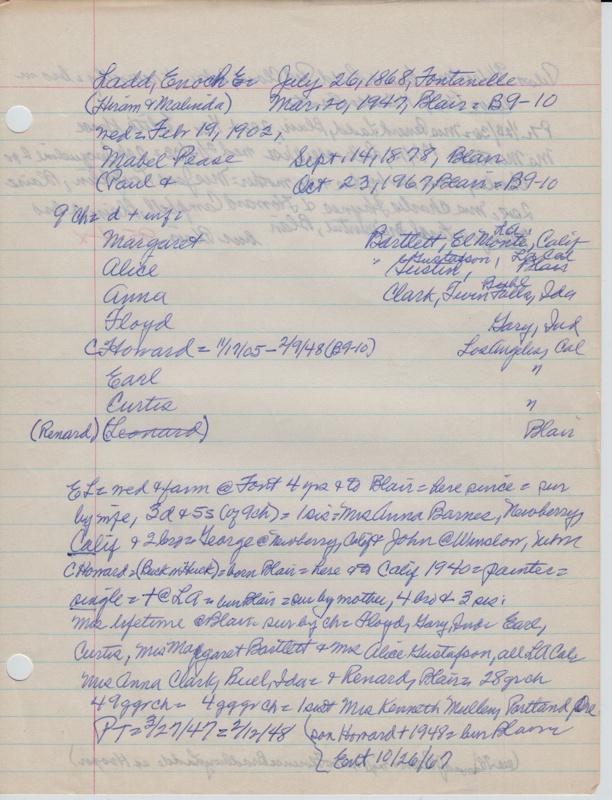 Ladd, Enoch E = July 26, 1868, Fontanelle
(Hiram & Malinda) Mar. 20, 1947, Blair = B9-10
wed = Febr 19, 1902,
Mabel Pease Sept. 14, 1878, Blair
(Paul & Oct 23, 1967, Blair = B9-10
9 ch = d + inf:
Margaret Bartlett, El Monte, LA Calif
Alice " Gustin, Gustafson, LA Cal Blair
Anna Clark, Twin Falls, Buhl Ida
Floyd Gary, Ind
C Howard = 11/17/05 - 2/9/48 (B9-10) Los Angeles, Cal
Earl "
Curtis "
(Renard) (Leonard) Blair
EL = wed & farm @ Font 4 yrs & to Blair = here since = sur
by wife, 3d & 5s (of 9ch) = 1 sis = Mrs Anna Barnes, Newberry,
Calif & 2 bro = George @ Newberry, Calif & John @ Winslow,
C Howard = (Buck) = born Blair = here & to Calif 1940 = painter =
single = + @ LA = bur Blair = sur by mother, 4 bro & 3 sis:
Mrs lifetime @ Blair = sur by ch = Floyd, Gary, Ind = Earl,
Curtis, Mrs Margaret Bartlett & Mrs Alice Gustafson, all LA Cal,
Mrs Anna Clark, Buel, Ida = & Renard, Blair = 28 grch
49 ggrch = 4 gggrch = 1 sis = Mrs Kenneth Mullen, Portland, Ore
PT = 3/27/47 = 2/12/48 (son Howard + 1948 = bur Blair =
Ent 10/26/67